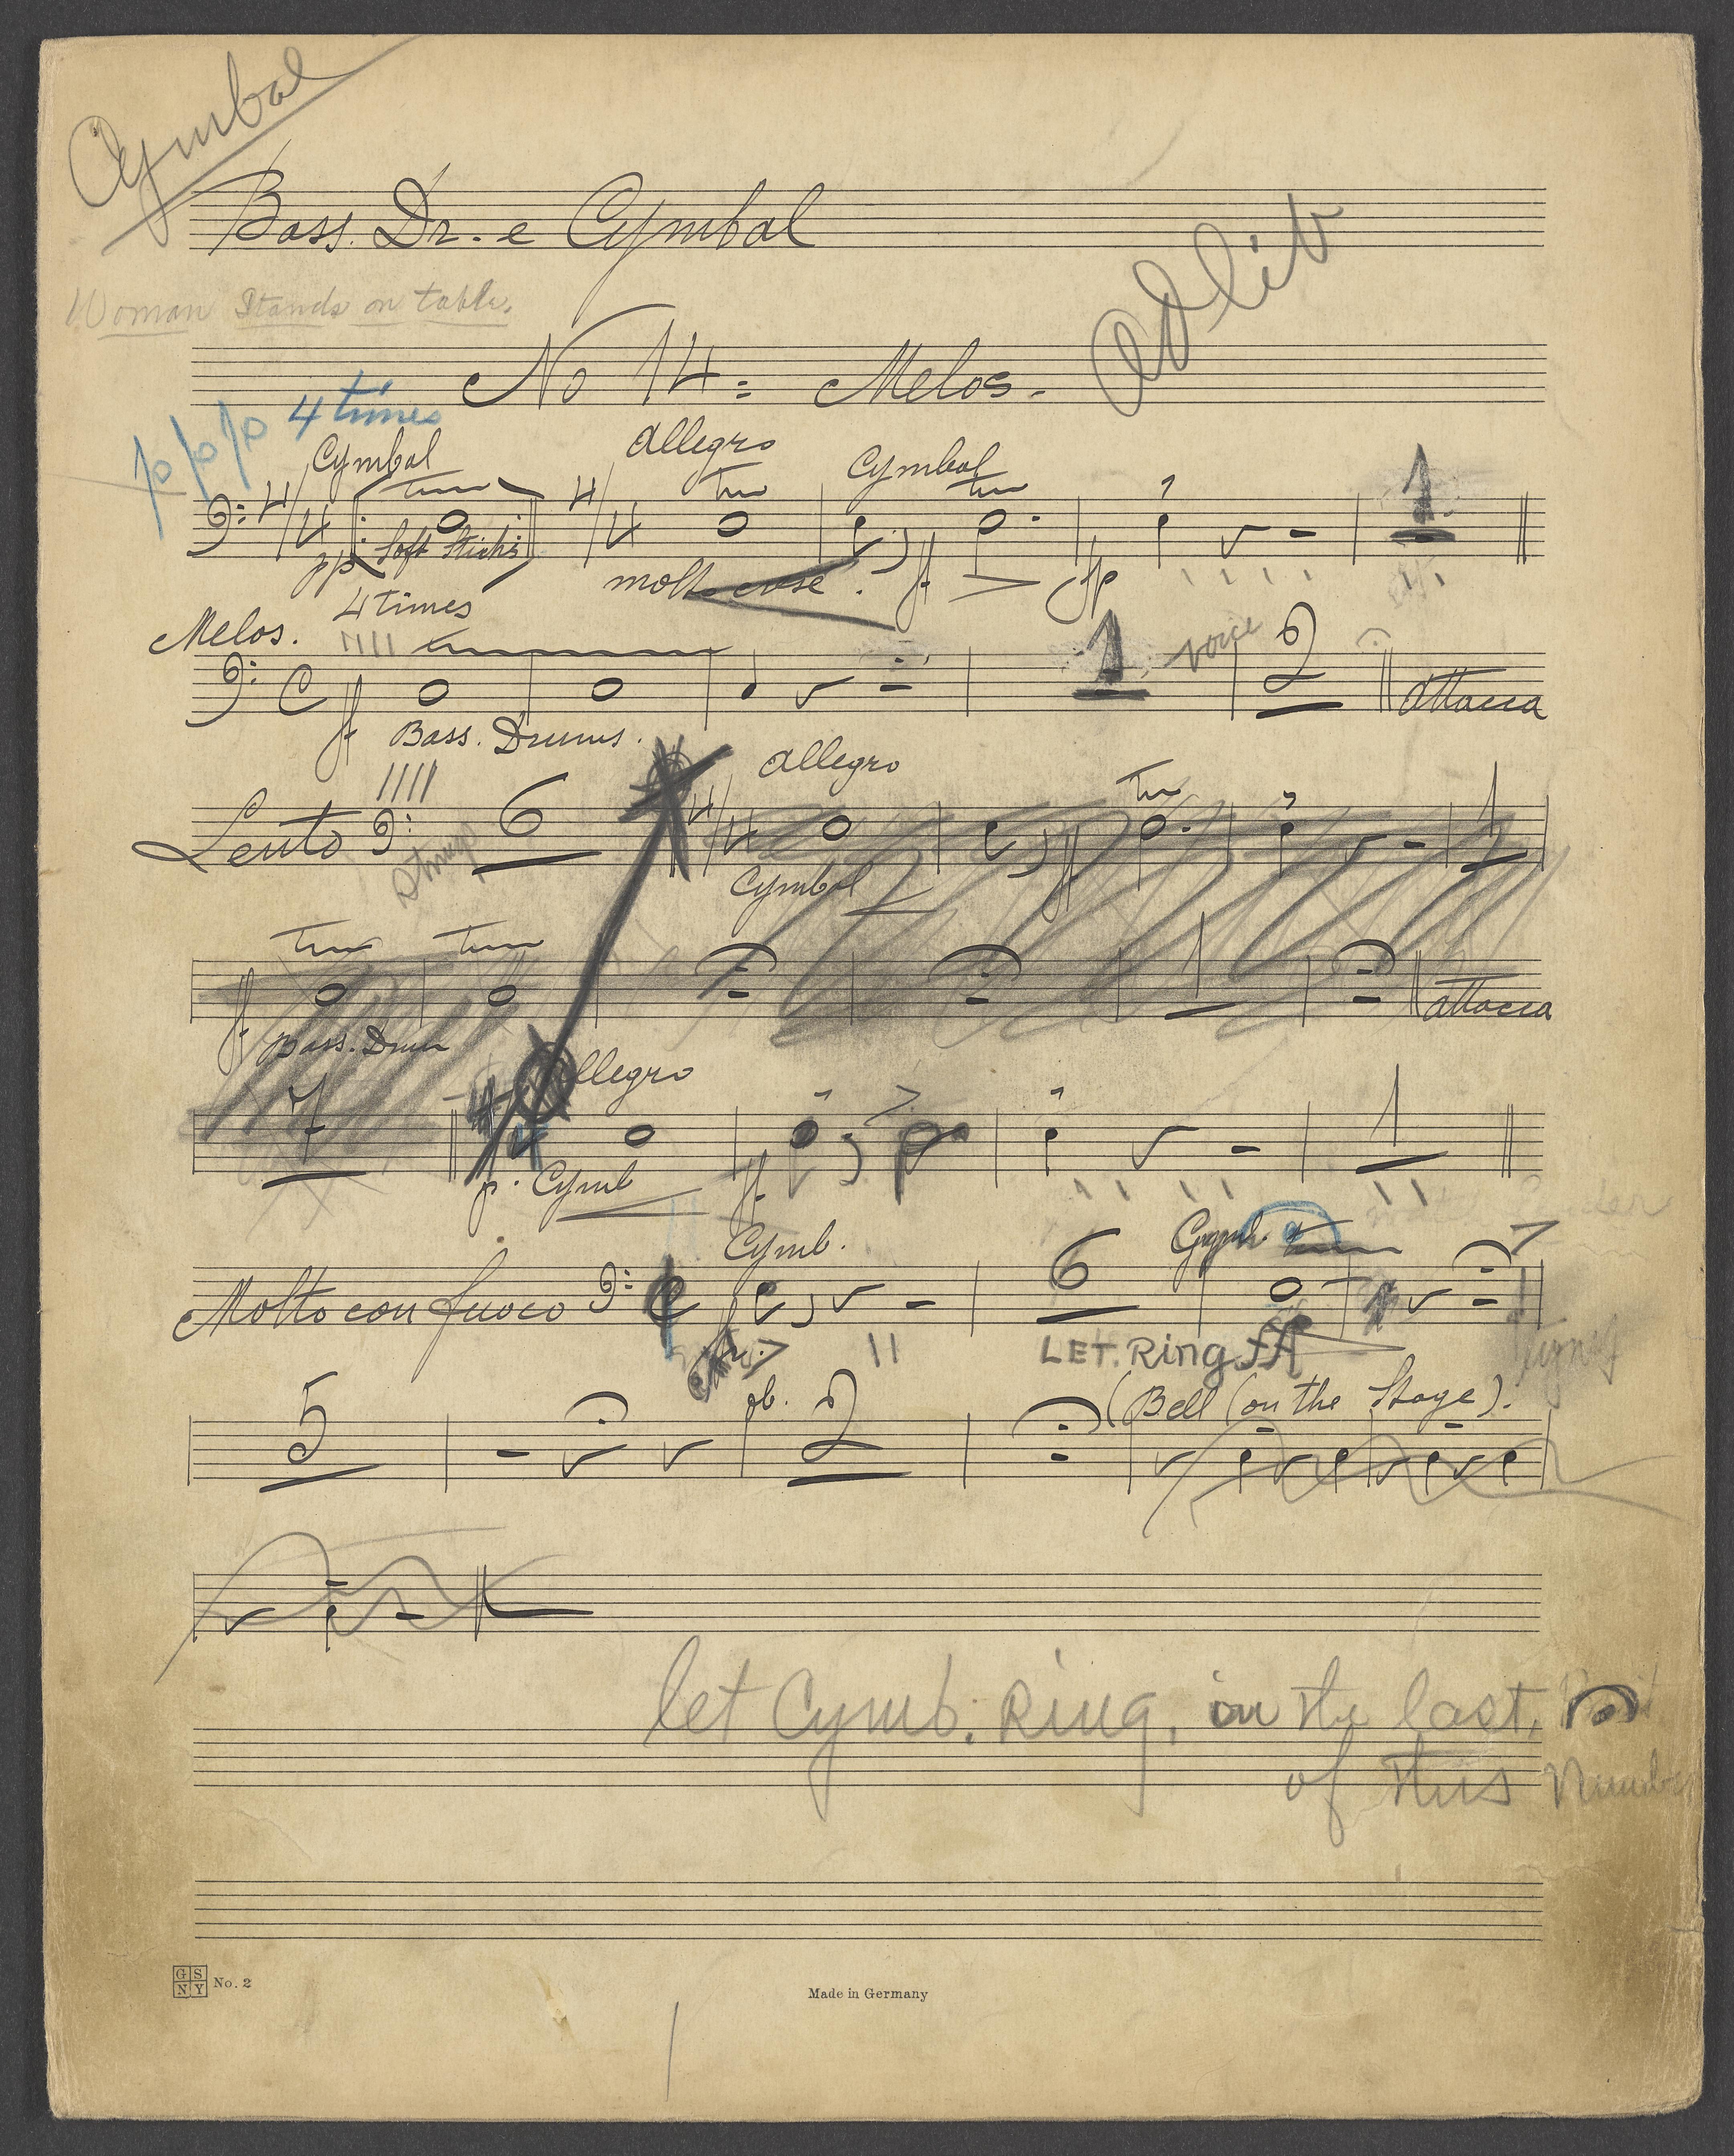 Cymbal
Bass. Dr. e Cymbal
Woman Stands on table.
Adlib
No 14 = Melos.
ppp 4 times
Cymbal
Allegro
Cymbal
4/4 4/4 1
pp Soft Sticks
molto cresc. ff fp
4 times
Melos.
C 1 voice 2 attacca
ff Bass. Drums.
Allegro
Lento 6 4/4 1
Strings
Cymbal ff
ff attacca
Bass. Drum
Allegro
7 4 1
p. Cymb ff
Cymb. Cymb.
Molto con fuoco 6
LET. Ring ff
5 ob. 2 (Bell (on the Stage).
let Cymb. Ring, on the last,
of this Number
GS NY No. 2
Made in Germany